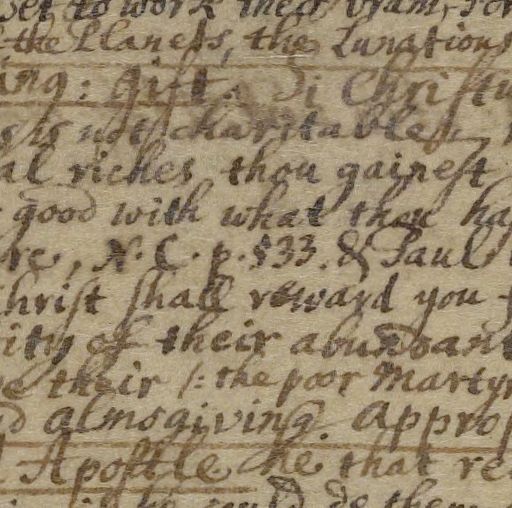 set to work their brain, for
the Planets, the Lunations
ing: gift. Di Christu
is not charitable,
al riches thou gainest
good with what thou ha
re, N. C. p. 533. & Paul
Christ shall reward you
ity of their abundan
e their /: the poor Martyr
d almsgiving. Approp
Apostle he that re